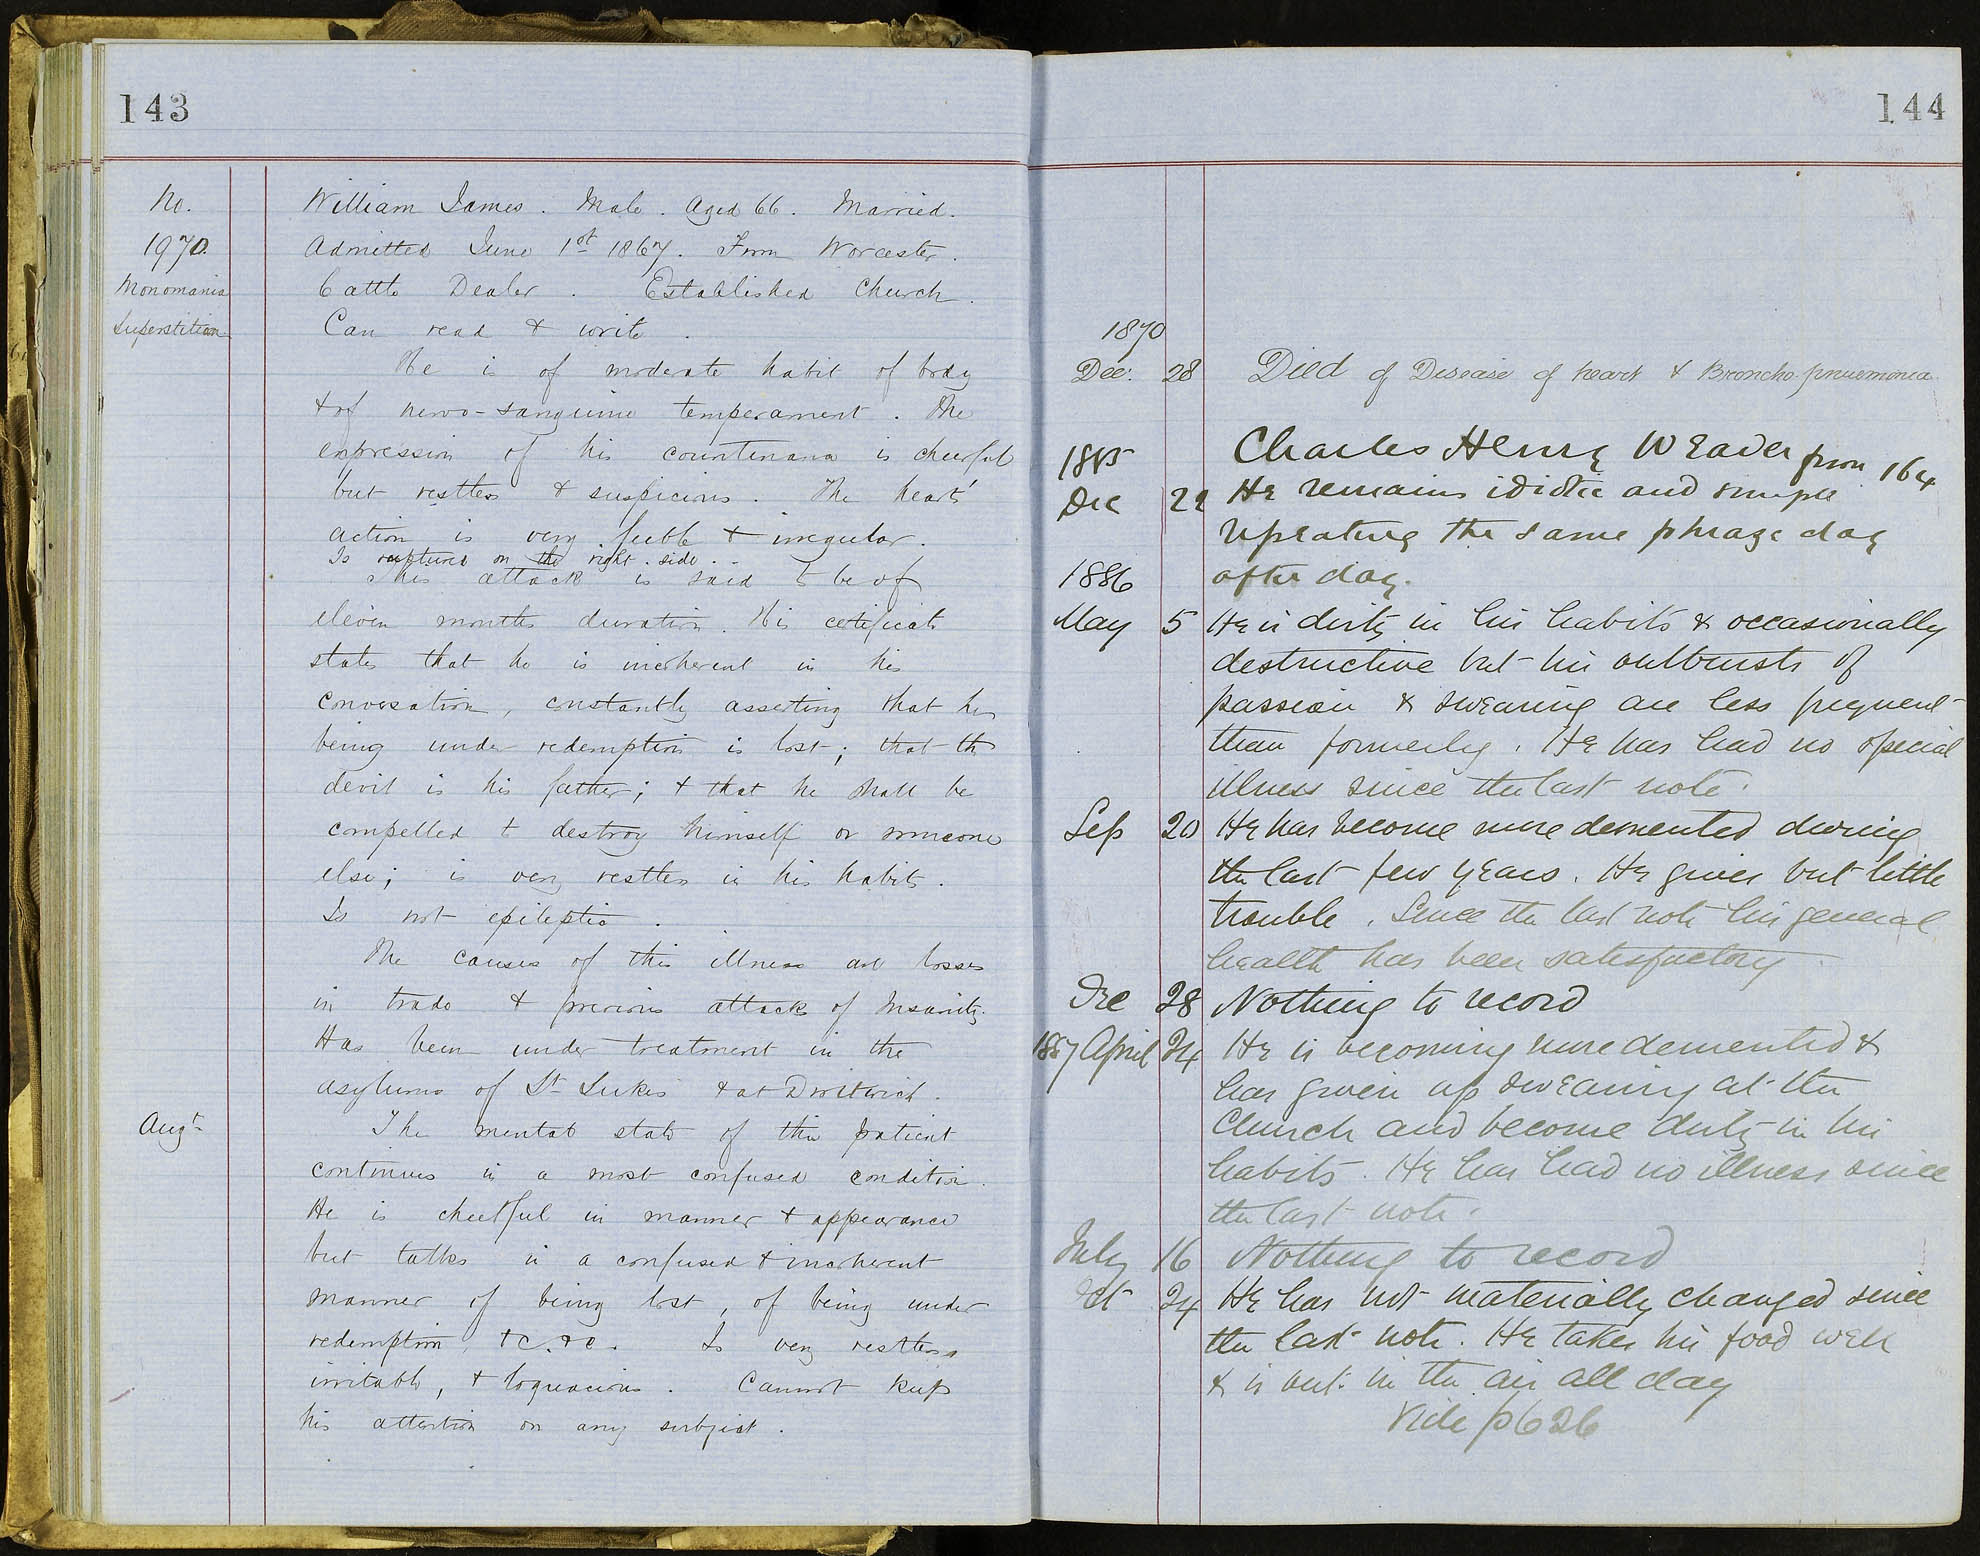 143
No.
1970.
Monomania
Superstition
William James. Male. Aged 66. Married.
Admitted June 1st 1867. From Worcester.
Cattle Dealer. Established Church.
Can read & write.
He is of moderate habit of body
& of nervo-sanguine temperament. The
expression of his countenance is cheerful
but restless & suspicious. The heart's
action is very feeble & irregular.
Is ruptured on the right side.
This attack is said to be of
eleven months duration. His certificate
states that he is incoherent in his
conversation, constantly asserting that he
being under redemption is lost; that the
devil is his father; & that he shall be
compelled to destroy himself or someone
else; is very restless in his habits.
Is not epileptic.
The causes of this illness are losses
in trade & previous attacks of Insanity.
Has been under treatment in the
asylums of St Lukes & at Droitwich.
Augt
The mental state of this patient
continues in a most confused condition.
He is cheerful in manner & appearance
but talks in a confused & incoherent
manner of being lost, of being under
redemption, &c. &c. Is very restless,
irritable, & loquacious. Cannot keep
his attention on any subject.
144
1870
Dec. 28 Died of Disease of heart & Broncho-pneumonia.
Charles Henry Weaver from 164
1885
Dec 22 He remains idiotic and simple
repeating the same phrase day
after day.
1886
May 5 He is dirty in his habits & occasionally
destructive but his outbursts of
passion & swearing are less frequent
than formerly. He has had no special
illness since the last note.
Sep 20 He has become more demented during
the last few years. He gives but little
trouble. Since the last note his general
health has been satisfactory.
Dec 28 Nothing to record
1887 April 24 He is becoming more demented &
has given up swearing at the
Church and become dirty in his
habits. He has had no illness since
the last note.
July 16 Nothing to record
Oct 24 He has not materially changed since
the last note. He takes his food well
& is out in the air all day
Vide p626